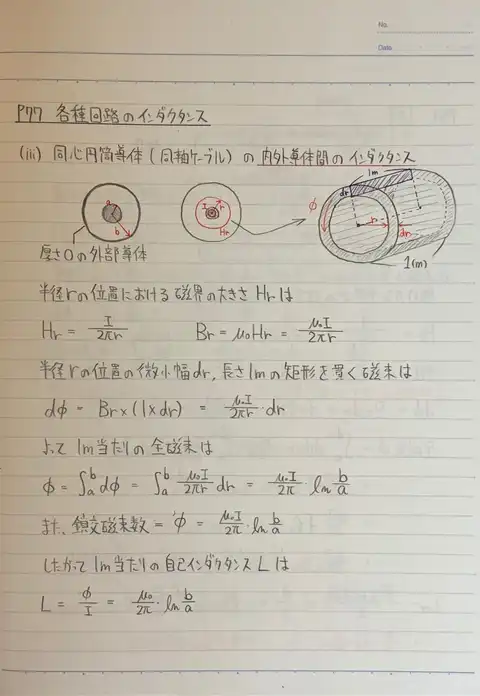 No.
Date
P77 各種回路のインダクタンス
(iii) 同心円筒導体(同軸ケーブル)の内外導体間のインダクタンス
a
b
I
r
Hr
1m
dr
Φ
r
dr
1(m)
厚さ0の外部導体
半径rの位置における磁界の大きさHrは
Hr = I/2πr  Br = μ₀Hr = μ₀I/2πr
半径rの位置の微小幅dr, 長さ1mの矩形を貫く磁束は
dφ = Br×(1×dr) = μ₀I/2πr・dr
よって1m当たりの全磁束は
φ = ∫ₐᵇdφ = ∫ₐᵇ μ₀I/2πr dr = μ₀I/2π・ln b/a
また、鎖交磁束数 = φ = μ₀I/2π・ln b/a
したがって1m当たりの自己インダクタンスLは
L = φ/I = μ₀/2π・ln b/a